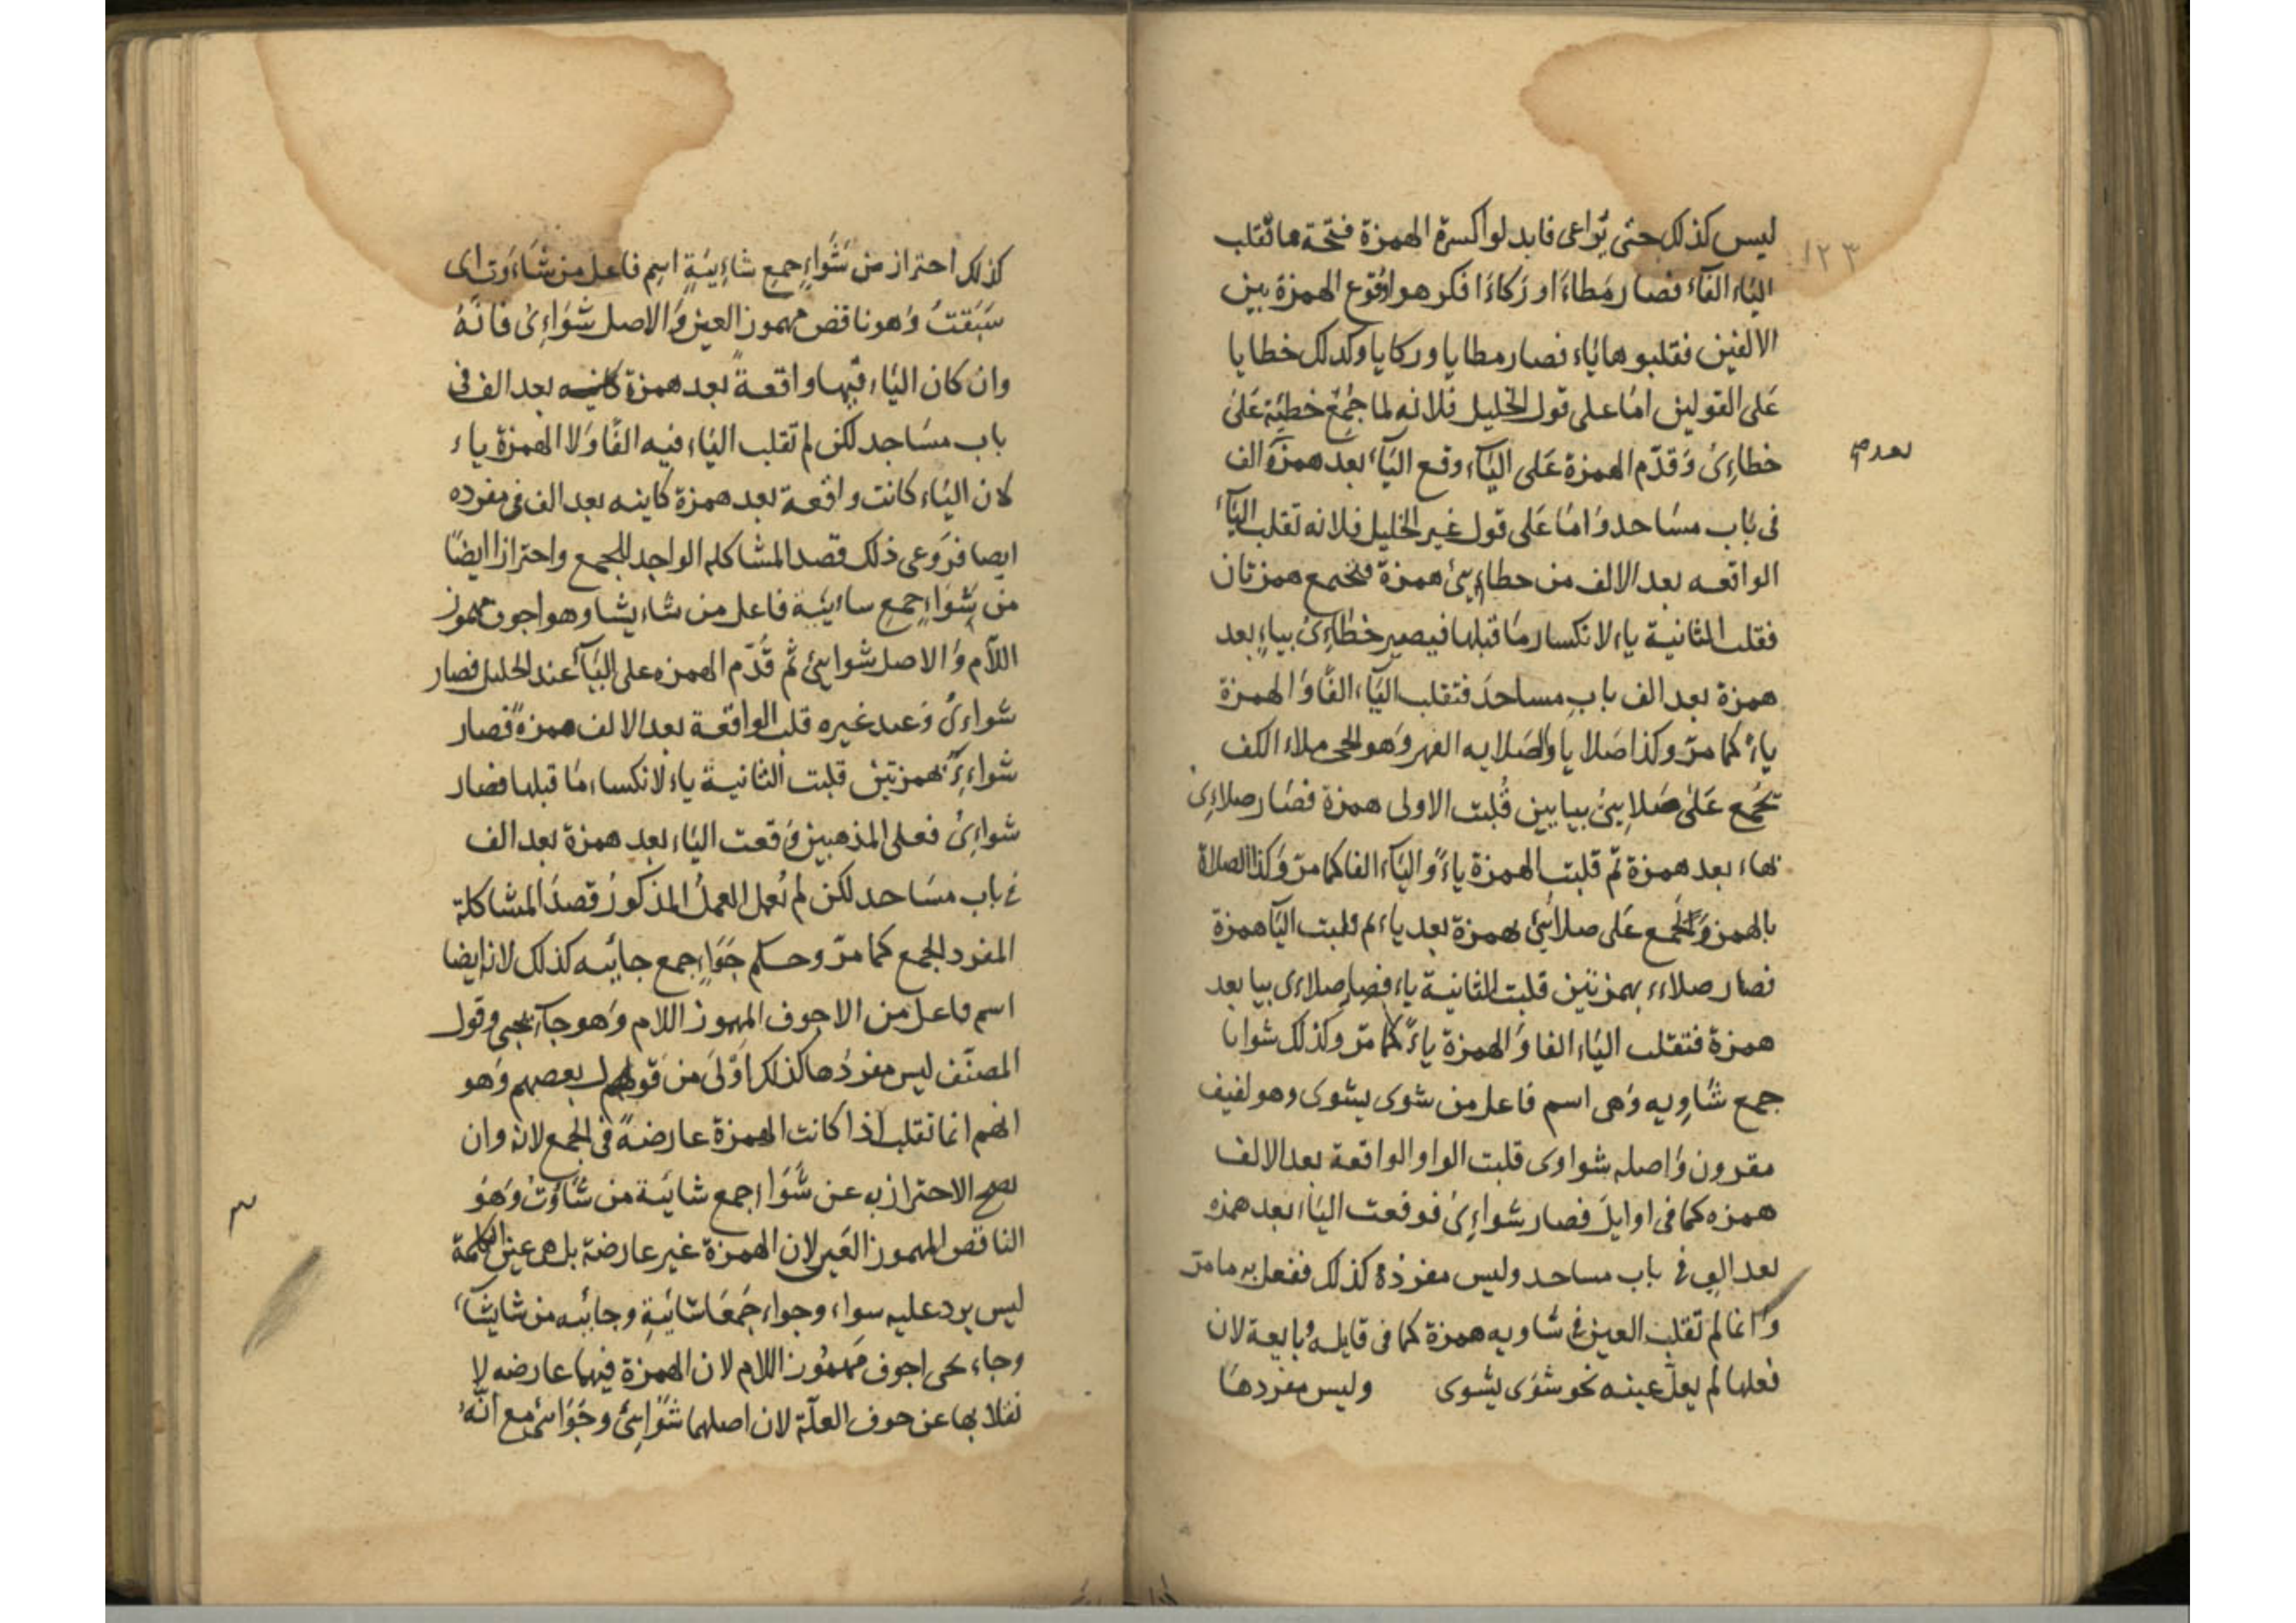 ليس كذلك حتى يراعى فابدلوا كسرة الهمزة فتحة فانقلب
الياء الفاً فصار مطاءَا وركاءَا فكرهوا وقوع الهمزة بين
الالفين فقلبوها ياء فصار مطايا وركايا وكذلك خطايا
على القولين اما على قول الخليل فلانه لما جُمع خطيئة على
خطاءِىُ وقدّم الهمزة على الياء وقع الياء بعد همزة الف
في باب مساجد واما على قول غير الخليل فلانه تقلب الياء
الواقعه بعد الالف من خطايئ همزة فتجتمع همزتان
فقلب الثانية ياء لانكسار ما قبلها فيصير خطاءِىُ بياءٍ بعد
همزة بعد الف باب مساجد فتقلب الياء الفًا والهمزة
ياءً كما مرّ وكذا صلايا والصلايه الفهر وهو الحجر ملاء الكف
تجمع على صلايئ بيايين قُلبت الاولى همزة فصار صلاءِىُ
بهاء بعد همزة ثم قلبت الهمزة ياءً والياء الفا كما مرّ وكذا الصلاة
بالهمز والجمع على صلايئ بهمزة بعد ياء ثم قلبت الياء همزة
فصار صلاءء بهمزتين قلبت الثانية ياء فصار صلاءى بيا بعد
همزة فتقلب الياء الفا والهمزة ياءً كما مرّ وكذلك شوايا
جمع شاويه وهى اسم فاعل من شوى يشوى وهو لفيف
مقرون واصله شواوى قلبت الواو الواقعة بعد الالف
همزه كما فى اوايل فصار شواءِىُ فوقعت الياء بعد همزه
بعد الف في باب مساجد وليس مفرده كذلك ففعل به ما مرّ
وانما لم تقلب العين في شاويه همزة كما فى قايله وبايعة لان
فعلها لم يعلّ عينه نحو شوى يشوى وليس مفردها
١٢٣
بعد
كذلك احتراز من شَوَاءٍ جمع شاءِيَةٍ اسم فاعل من شاءَوت اى
سَبَقتُ وهو ناقص مهموز العين والاصل شواءِىُ فانّه
وان كان الياء فيها واقعةً بعد همزة كاينه بعد الف فى
باب مساجد لكن لم تقلب الياء فيه الفًا ولا الهمزة ياء
لان الياء كانت واقعة بعد همزة كاينه بعد الف فى مفرده
ايضا فروعى ذلك قصد المشاكلة الواحد للجمع واحترازا ايضًا
من شواءٍ جمع شائية فاعل من شاء يشا وهو اجوف مهموز
اللام والاصل شوايئ ثم قُدّم الهمزه على الياء عند الخليل فصار
شواءىُ وعند غيره قلب الواقعة بعد الالف همزةً فصار
شواءِءُ بهمزتين قلبت الثانية ياء لانكسار ما قبلها فصار
شواءِىُ فعلى المذهبين وقعت الياء بعد همزة بعد الف
في باب مساجد لكن لم يُعمل العمل المذكور قصد المشاكلة
المفرد الجمع كما مرّ وحكم جَوَاءٍ جمع جائيه كذلك لانه ايضا
اسم فاعل من الاجوف المهموز اللام وهو جاء يجى وقول
المصنّف ليس مفردُها كذلك اولى من قول بعضهم وهو
انهم انما تقلب اذا كانت الهمزة عارضةً في الجمع لانه وان
صحّ الاحتراز به عن شَوَاءٍ جمع شائية من شَاَوْتُ وهُو
الناقص المهموز العين لان الهمزة غير عارضة بل هى عين الكلمة
ليس يرد عليه شواء وجواء جَمعَا شائيةٍ وجائيه من شا يشاء
وجاء يجى اجوف مهموز اللام لان الهمزة فيهما عارضه لا
نقلابها عن حرف العلّة لان اصلهما شَوَايئُ وجَوَايئُ مع انّه